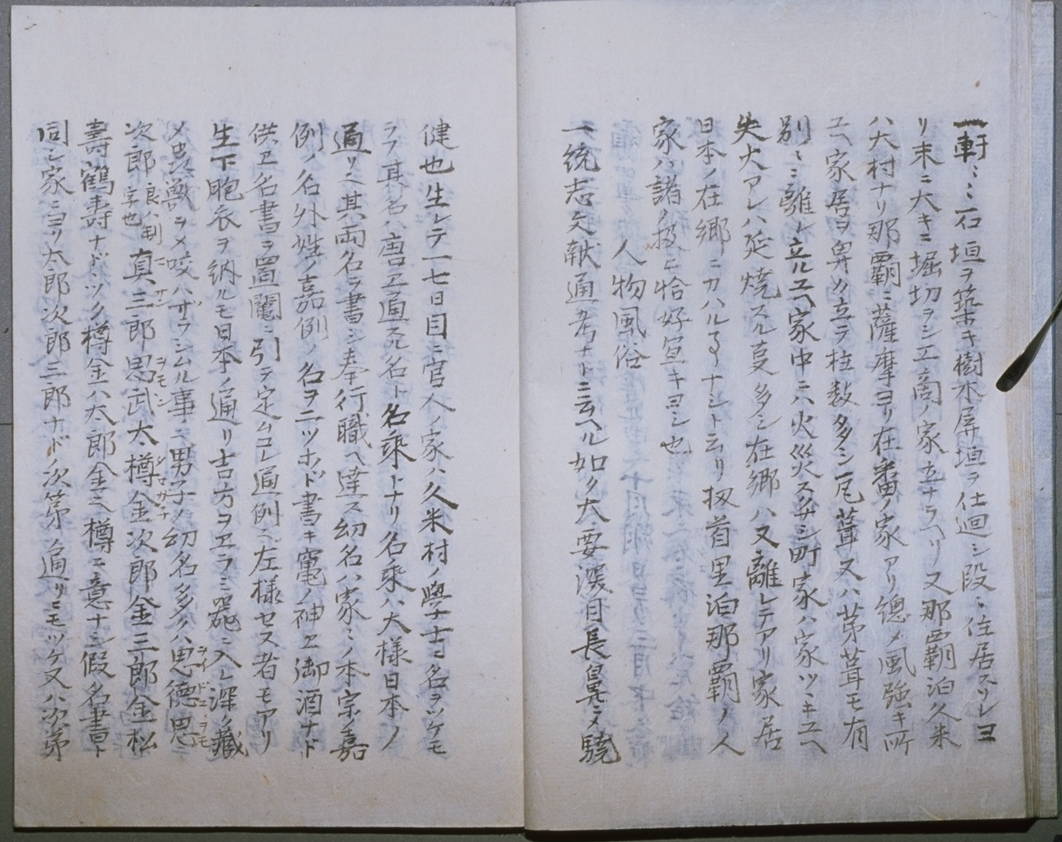 一軒〻〻石垣ヲ築キ樹木屏垣ヲ仕迴シ段〻住居スリレヨ
リ末ニ大キニ堀切ヲシ工商ノ家立ナラヘリ又那覇泊久米
ハ大村ナリ那覇ニ薩摩ヨリ在番ノ家アリ總メ風強キ所
ユヘ家居ヲ卑ク立ラ柱数多シ瓦葺又ハ茅葺モ有
別〻ニ離レ立ルユヘ家中ニハ火災ス少シ町家ハ家ツキユヘ
失火アレハ延焼スル叓多シ在郷ハ又離レテアリ家居
日本ノ在郷ニカハルヿナシト云リ扨首里泊那覇ノ人
家ハ諸㕝ニ恰好宜キヨシ也
人物風俗
一統志文献通考ナトニ云ヘル如ク大要深目長鼻ニメ驍
健也生レテ一七日目ニ官人ノ家ハ久米村ノ學士ヨ名ヲツケモ
ラフ其名ハ唐エ通スル名ト名乘トナリ名乘ハ大様日本ノ
通リ也其両名ヲ書シ奉行職ヘ達ス幼名ハ家〻ノ本宗ノ嘉
例ノ名外姓ノ嘉例ノ名ヲ二ツホド書キ竃ノ神エ御酒ナト
供エ名書ヲ置鬮ニ引テ定ムコレ通例也左様セス者モアリ
生下胞衣ヲ納ルモ日本ノ通リ吉方ヲエラミ瓷ニ入レ深ク藏
メ虫獣ヲメ咬ハザラシムル事也男子ノ幼名多クハ思德思
次郎良ハ判字也真三郎思武太樽金次郎金三郎金松
壽鶴壽ナドヽツク樽金ハ太郎金也樽ニ意ナシ假名書ト
同シ家ニヨリ太郎次郎三郎ナド次第ノ通リニモツケ又ハ次第